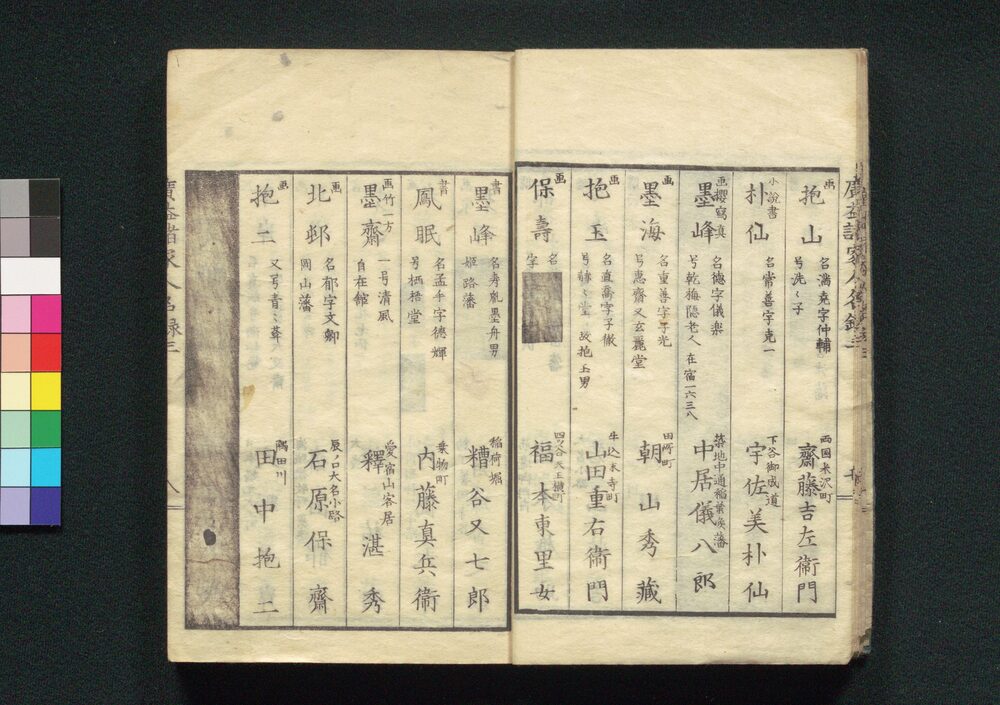 画 抱山 名満堯字仲輔 号洗〻子 西国米沢町 齋藤吉左衛門
小説書 朴仙 名常善字堯一 下谷御成道 宇佐美朴仙
画摆寫真 墨峰 名德字儀樂 号乾梅隠老人 在宿一六三八 築地中通稲葉侯藩 中居儀八郎
画 墨海 名重善字子光 号惠齋又玄麗堂 田所町 朝山秀藏
画 抱玉 名直喬字子徹 号静〻堂 故抱玉男 牛込末寺町 山田重右衛門
画 保壽 名 字 四ツ谷天王横町 福本東里女
書 墨峰 名秀胤墨舟男 姫路藩 稲荷堀 糟谷又七郎
書 鳳眠 名孟平字德輝 号栖梧堂 乗物町 内藤真兵衛
画竹一方 墨齋 一号清風 自在館 愛宕山客居 釋湛秀
画 北邨 名郁字文卿 岡山藩 辰ノ口大名小路 石原保齋
画 抱二 又号青〻菴 隅田川 田中抱二
廣益諸家人名録二
八